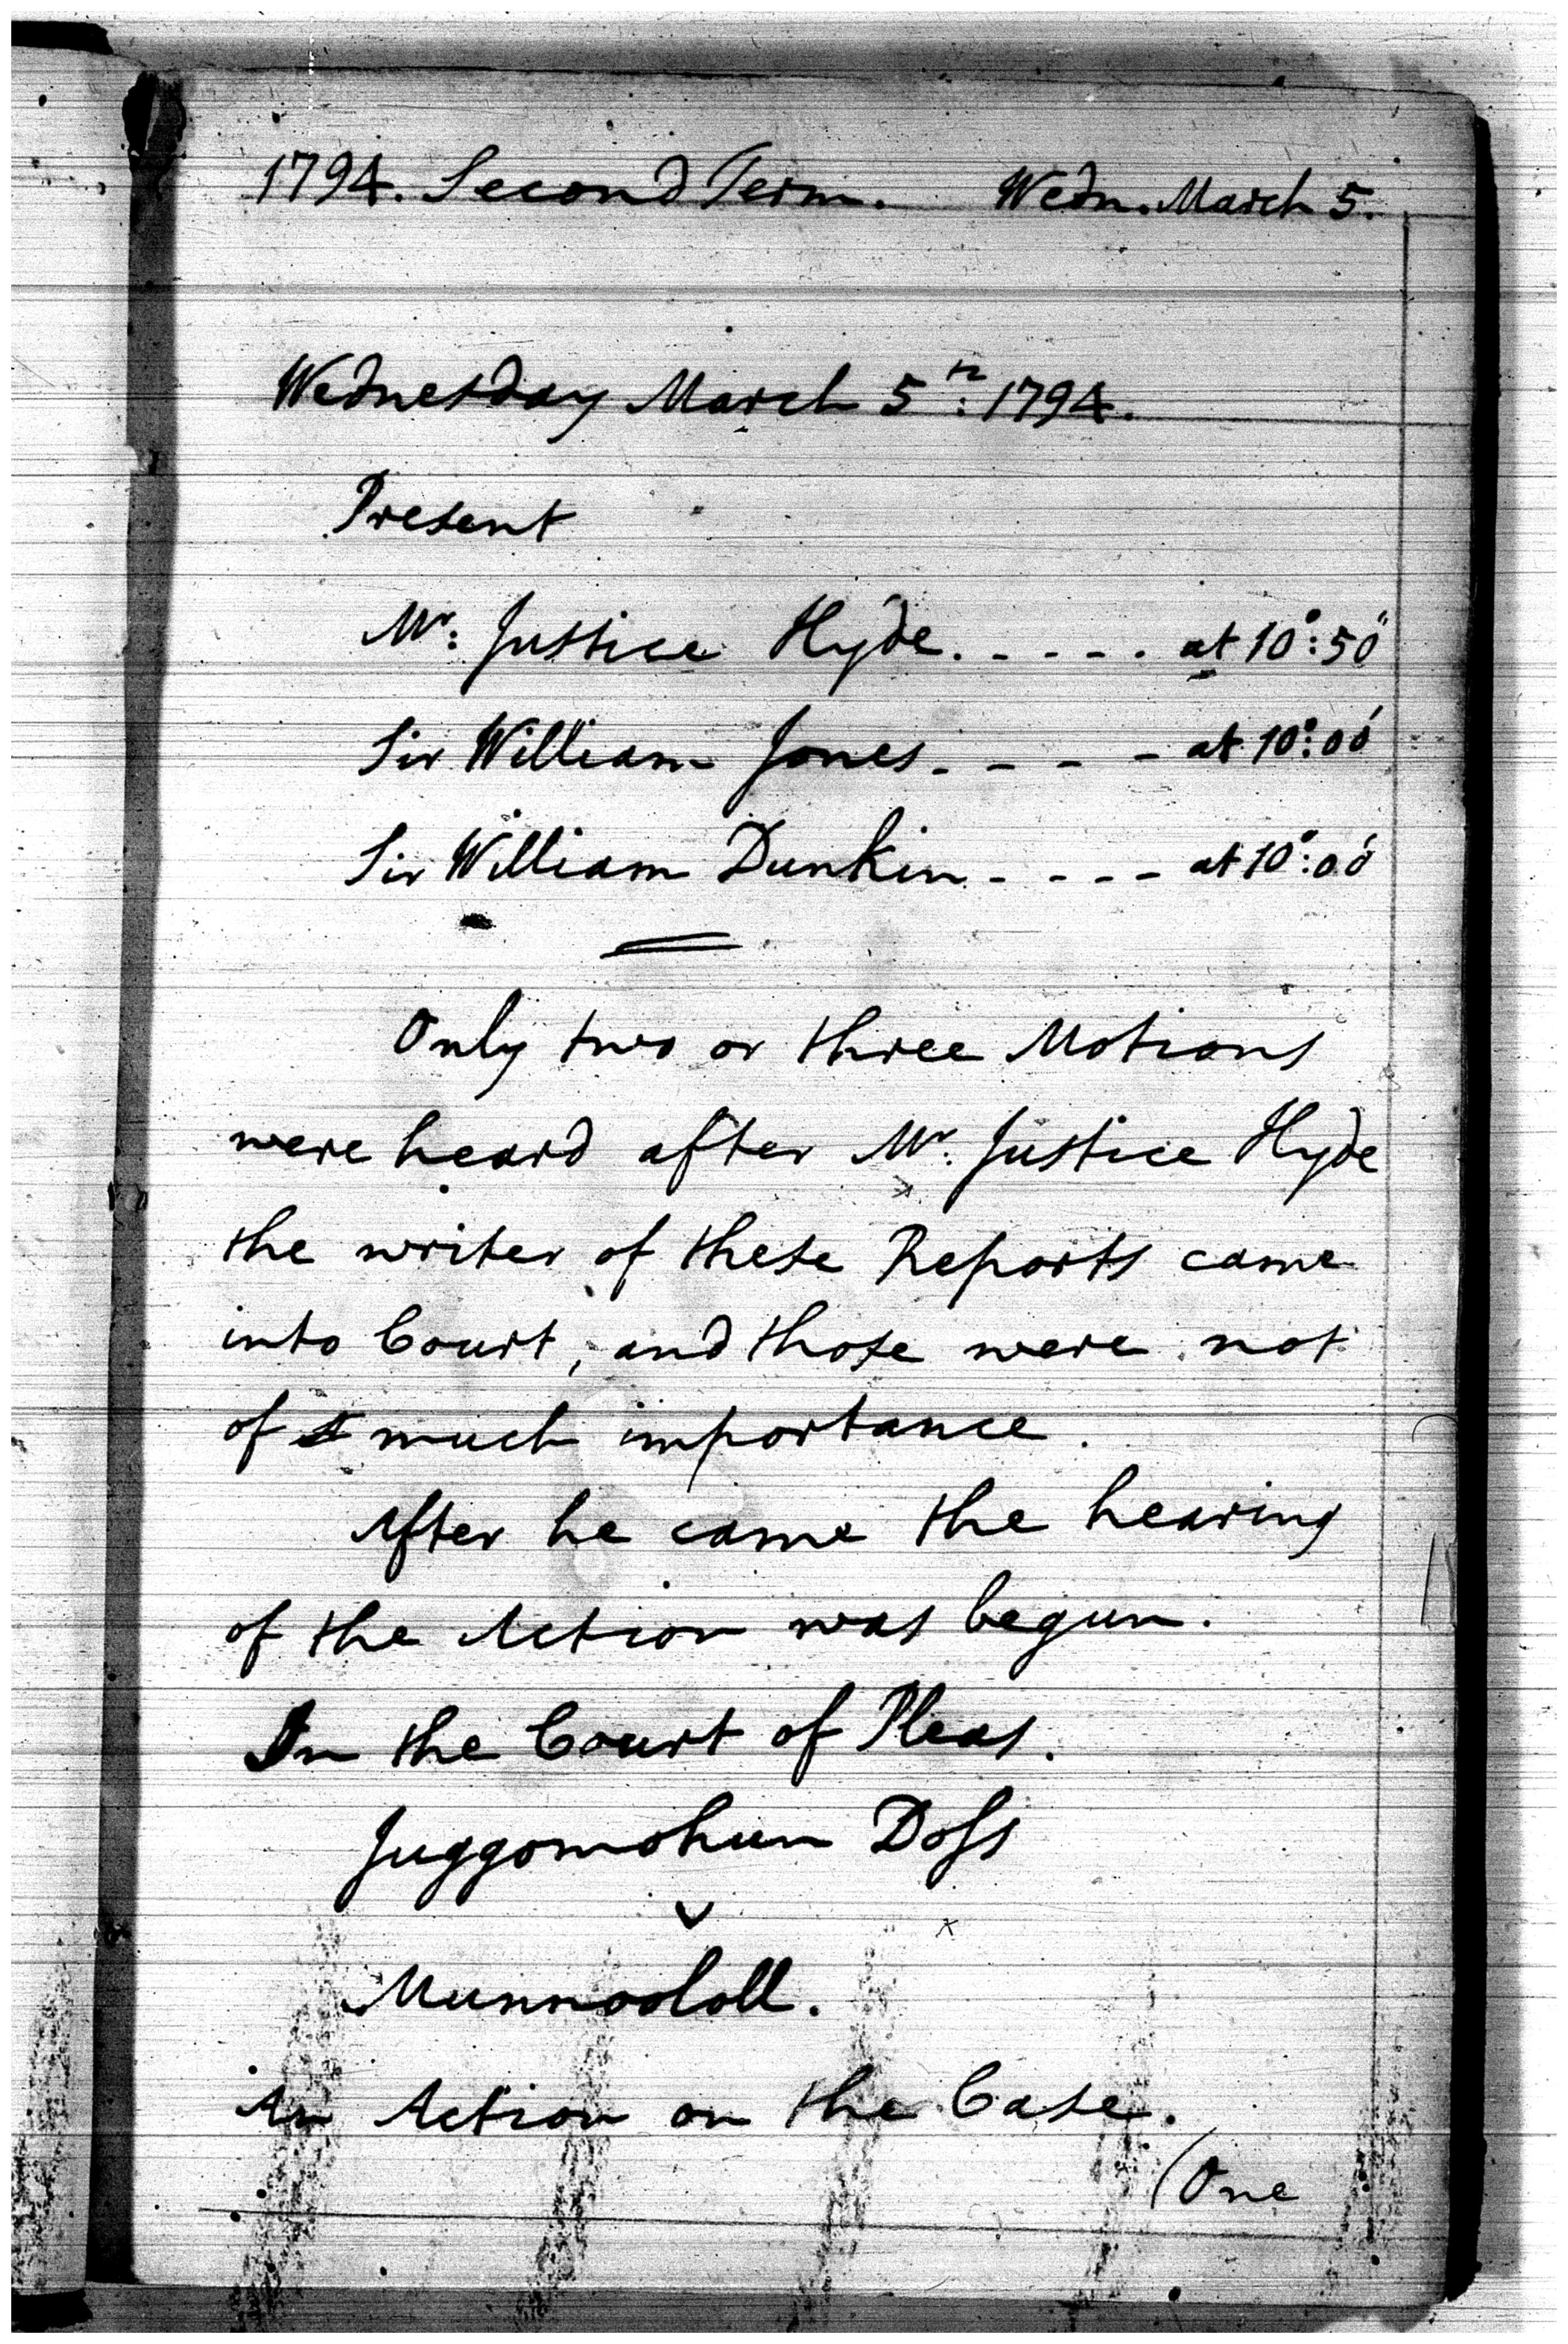 1794. Second Term. Wedn. March 5.
Wednesday March 5th: 1794.
Present
Mr: Justice Hyde. - - - - . at 10°: 50'
Sir William Jones. - - - - at 10°: 00'
Sir William Dunkin - - - - at 10°: 00'
Only two or three Motions
were heard after Mr. Justice Hyde
the writer of these Reports came
into Court, and those were not
of much importance.
After he came the hearing
of the Action was begun.
In the Court of Pleas.
Juggomohun Doss
v
Munnoololl.
An Action on the Case.
(One